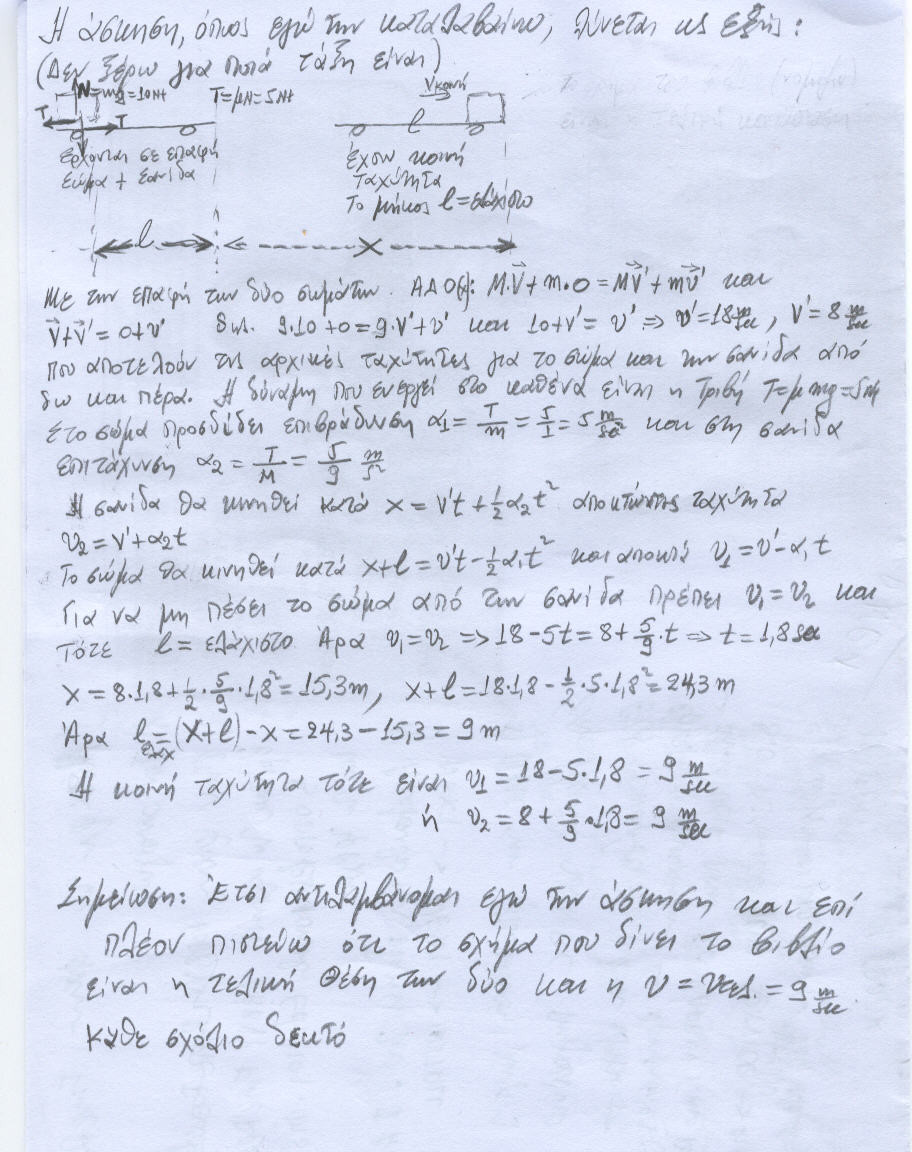 Η άσκηση, όπως εγώ την καταλαβαίνω, λύνεται ως εξής:
(Δεν ξέρω για ποιά τάξη είναι)
N=mg=10Nt T=μN=5Nt Vκοινή
T T l
έρχονται σε επαφή έχουν κοινή
σώμα + σανίδα ταχύτητα
Το μήκος l=ελάχιστο
l x
Με την επαφή των δύο σωμάτων. ΑΔΟρ: M·V⃗+m·0=MV⃗'+mυ⃗' και
V⃗+V⃗'=0+υ' δηλ. 9·10+0=9·V'+υ' και 10+V'=υ' ⇒ υ'=18 m/sec, V'=8 m/sec
που αποτελούν τις αρχικές ταχύτητες για το σώμα και την σανίδα από
δω και πέρα. Η δύναμη που ενεργεί στο καθένα είναι η Τριβή T=μmg=5Nt
Στο σώμα προσδίδει επιβράδυνση α₁=T/m=5/1=5 m/sec² και στη σανίδα
επιτάχυνση α₂=T/M=5/9 m/s²
Η σανίδα θα κινηθεί κατά x=V't+½α₂t² αποκτώντας ταχύτητα
υ₂=V'+α₂t
Το σώμα θα κινηθεί κατά x+l=υ't-½α₁t² και αποκτά υ₁=υ'-α₁t
Για να μη πέσει το σώμα από την σανίδα πρέπει υ₁=υ₂ και
τότε l=ελάχιστο. Άρα υ₁=υ₂ ⇒ 18-5t=8+5/9·t ⇒ t=1,8sec
x=8·1,8+½·5/9·1,8²=15,3m, x+l=18·1,8-½·5·1,8²=24,3m
Άρα l ελαχ=(x+l)-x=24,3-15,3=9m
Η κοινή ταχύτητα τότε είναι υ₁=18-5·1,8=9 m/sec
ή υ₂=8+5/9·1,8=9 m/sec
Σημείωση: Έτσι αντιλαμβάνομαι εγώ την άσκηση και επί
πλέον πιστεύω ότι το σχήμα που δίνει το βιβλίο
είναι η τελική θέση των δύο και η υ=υτελ.=9 m/sec
Κάθε σχόλιο δεκτό